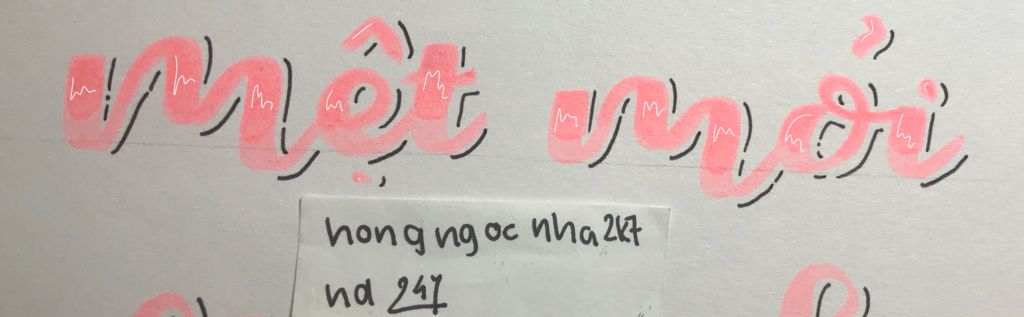 mệt mỏi
hongngoc nha2k7
nd 247